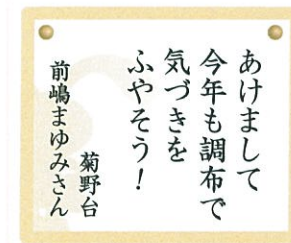 あけまして
今年も調布で
気づきを
ふやそう！
菊野台
前嶋まゆみさん